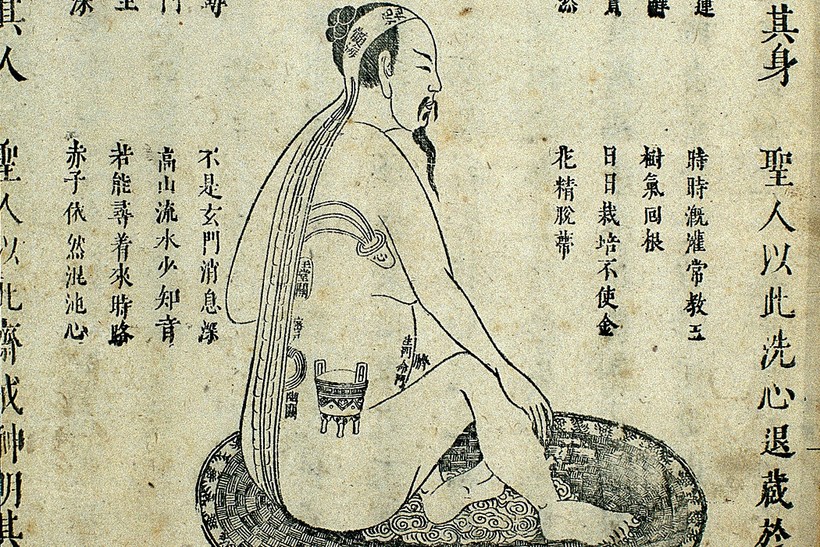 其身　聖人以此洗心退藏於
時時溉灌常教玉
樹氣囘根
日日栽培不使金
花精脫蒂
心
臍
幽關
不是玄門消息深
高山流水少知音
若能尋着來時路
赤子依然混池心
其人　聖人以此齋戒神明其